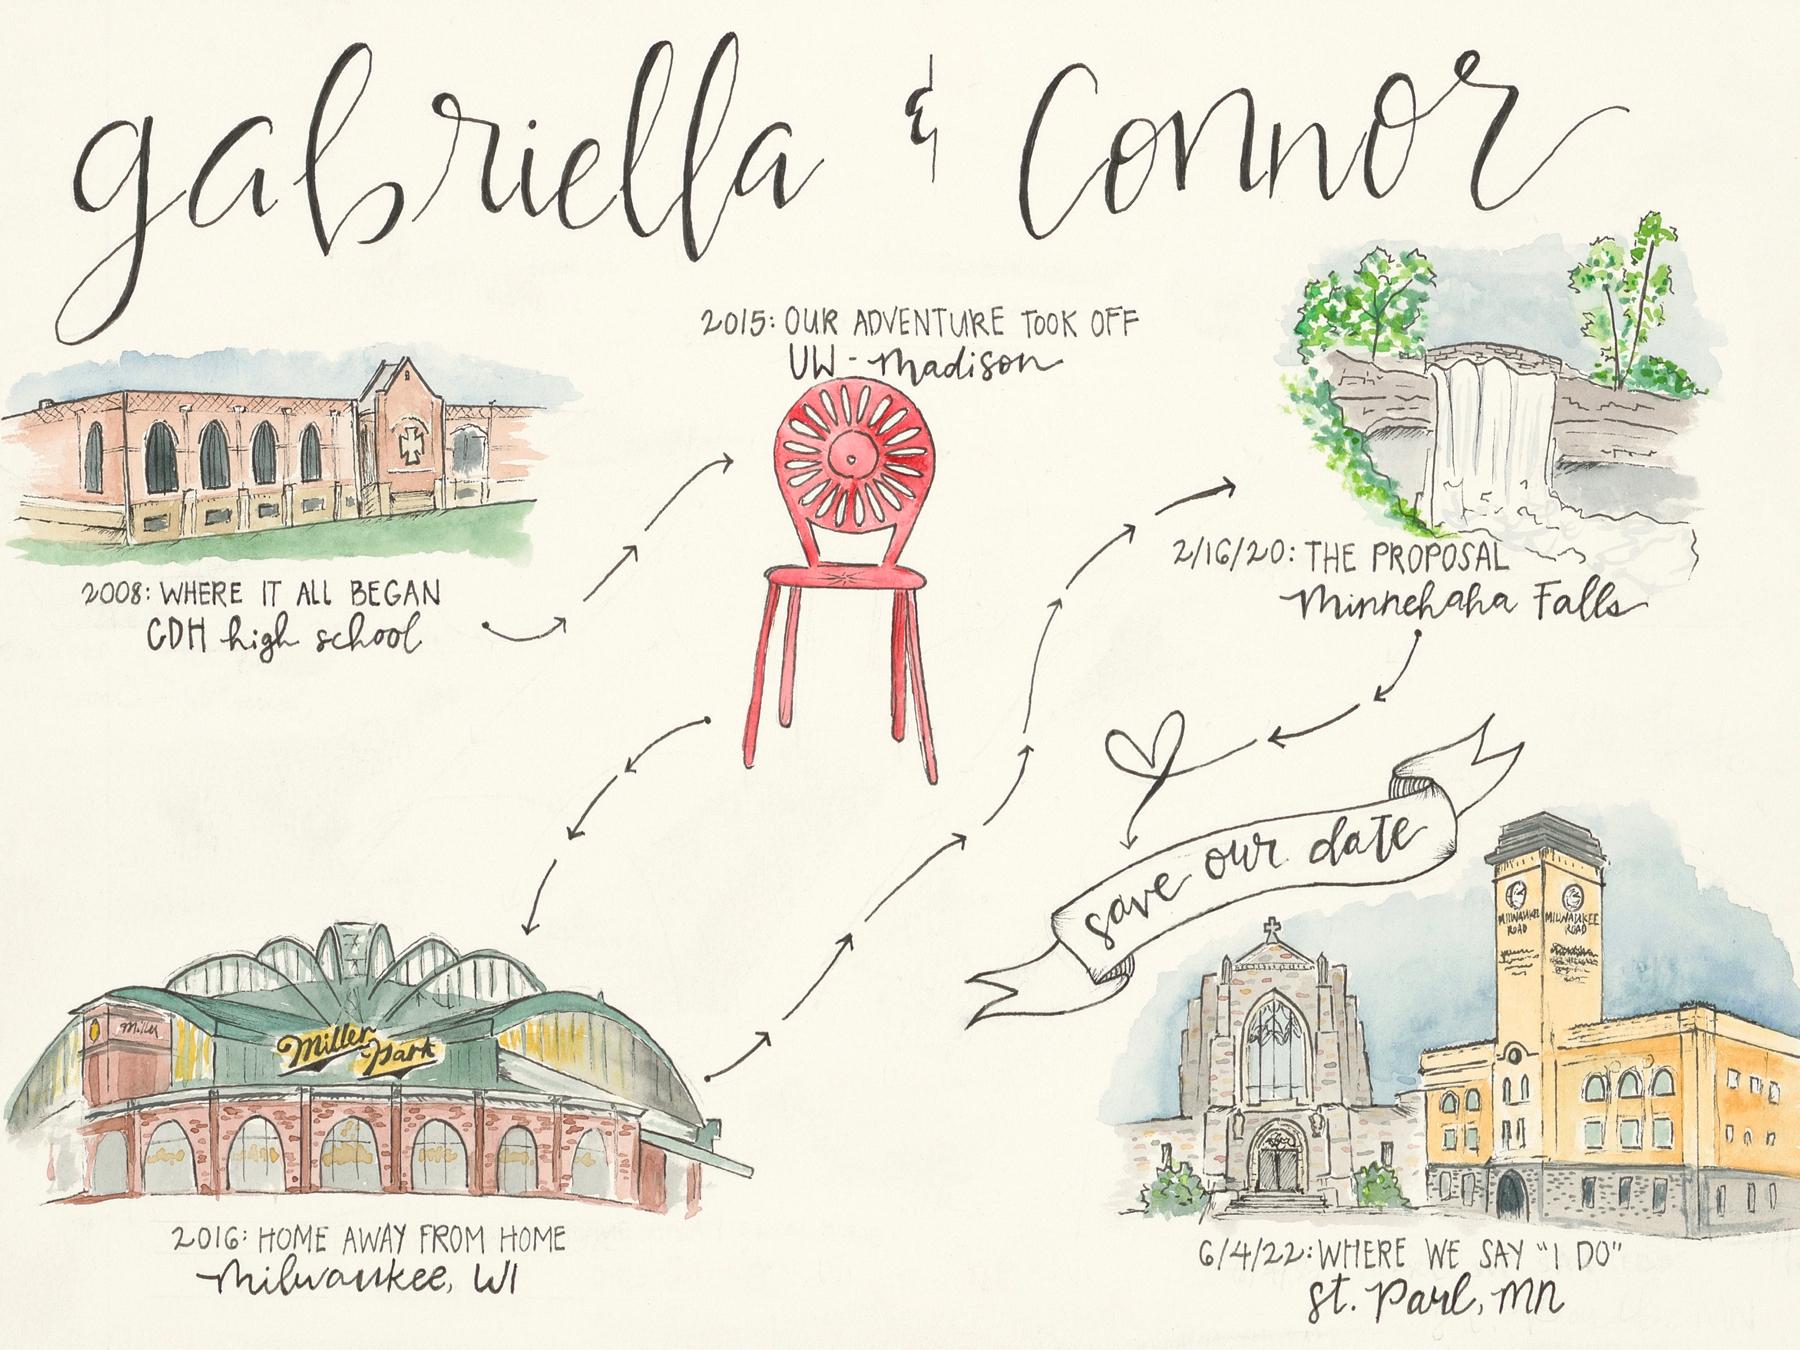 gabriella & Connor
2015: OUR ADVENTURE TOOK OFF
UW - Madison
2008: WHERE IT ALL BEGAN
CDH high school
2/16/20: THE PROPOSAL
Minnehaha Falls
save our date
MILWAUKEE ROAD
MILWAUKEE ROAD
Miller
Miller Park
2016: HOME AWAY FROM HOME
Milwaukee, WI
6/4/22: WHERE WE SAY "I DO"
St. Paul, MN